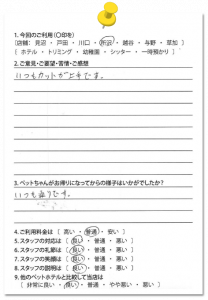 1. 今回のご利用(○印を)
[店舗: 見沼 ・ 戸田 ・ 川口 ・ 所沢 ・ 越谷 ・ 与野 ・ 草加 ]
[ ホテル ・ トリミング ・ 幼稚園 ・ シッター ・ 一時預かり ]
2. ご意見・ご要望・苦情・ご感想
いつもカットが上手です。
3. ペットちゃんがお帰りになってからの様子はいかがでしたか?
いつも通りです。
4. ご利用料金は [ 高い ・ 普通 ・ 安い ]
5. スタッフの対応は [ 良い ・ 普通 ・ 悪い ]
6. スタッフの礼節は [ 良い ・ 普通 ・ 悪い ]
7. スタッフの笑顔は [ 良い ・ 普通 ・ 悪い ]
8. スタッフの説明は [ 良い ・ 普通 ・ 悪い ]
9. 他のペットホテルと比較して当店は
[ 非常に良い ・ 良い ・ 普通 ・ やや悪い ・ 悪い ]